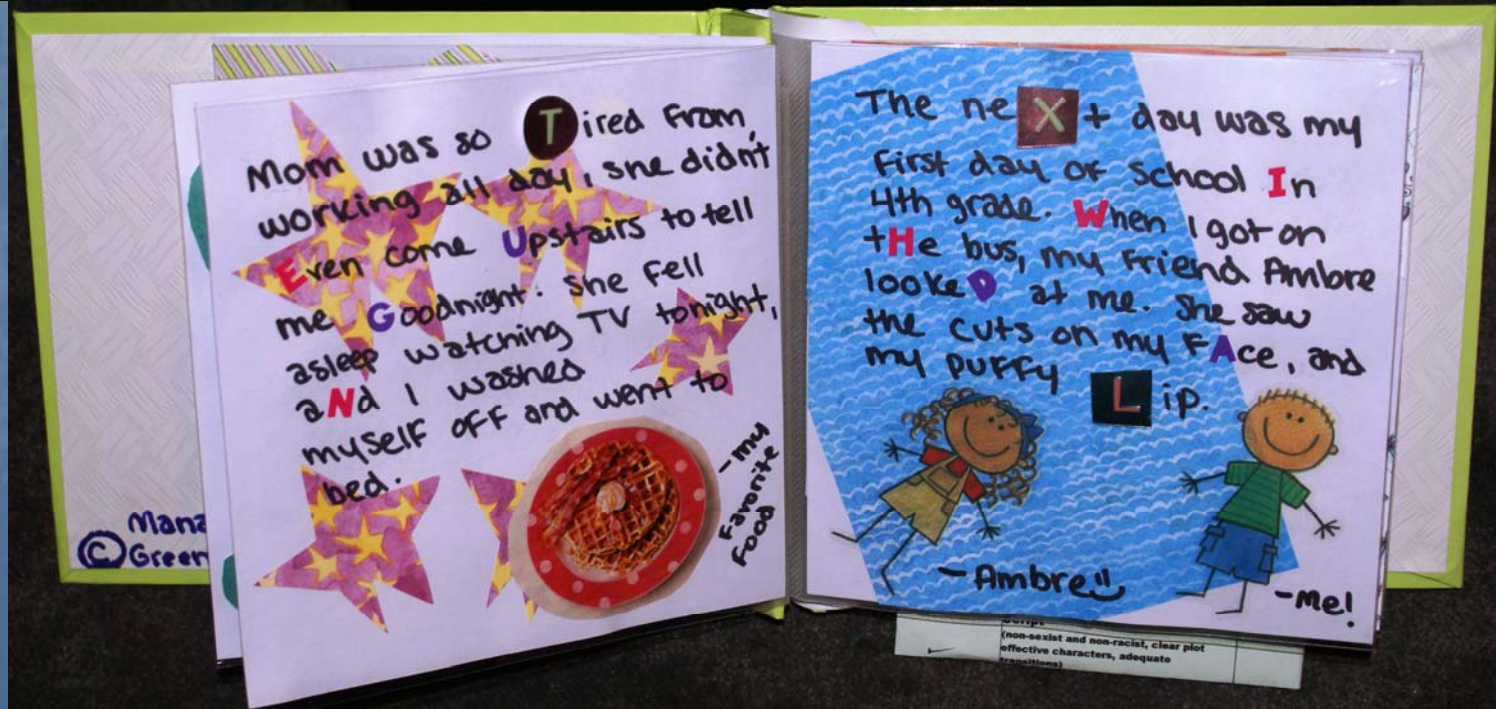 Mom was so Tired From
working all day, she didn't
Even come Upstairs to tell
me Goodnight. she fell
asleep watching TV tonight,
aNd I washed
myself off and went to
bed.
-my
Favorite
Food
© Mana
Green
The neXt day was my
First day of school In
4th grade. When I got on
tHe bus, my friend Ambre
lookeD at me. She saw
the cuts on my FAce, and
my puffy Lip.
-Ambre
-Me!
(non-sexist and non-racist, clear plot
effective characters, adequate
transitions)